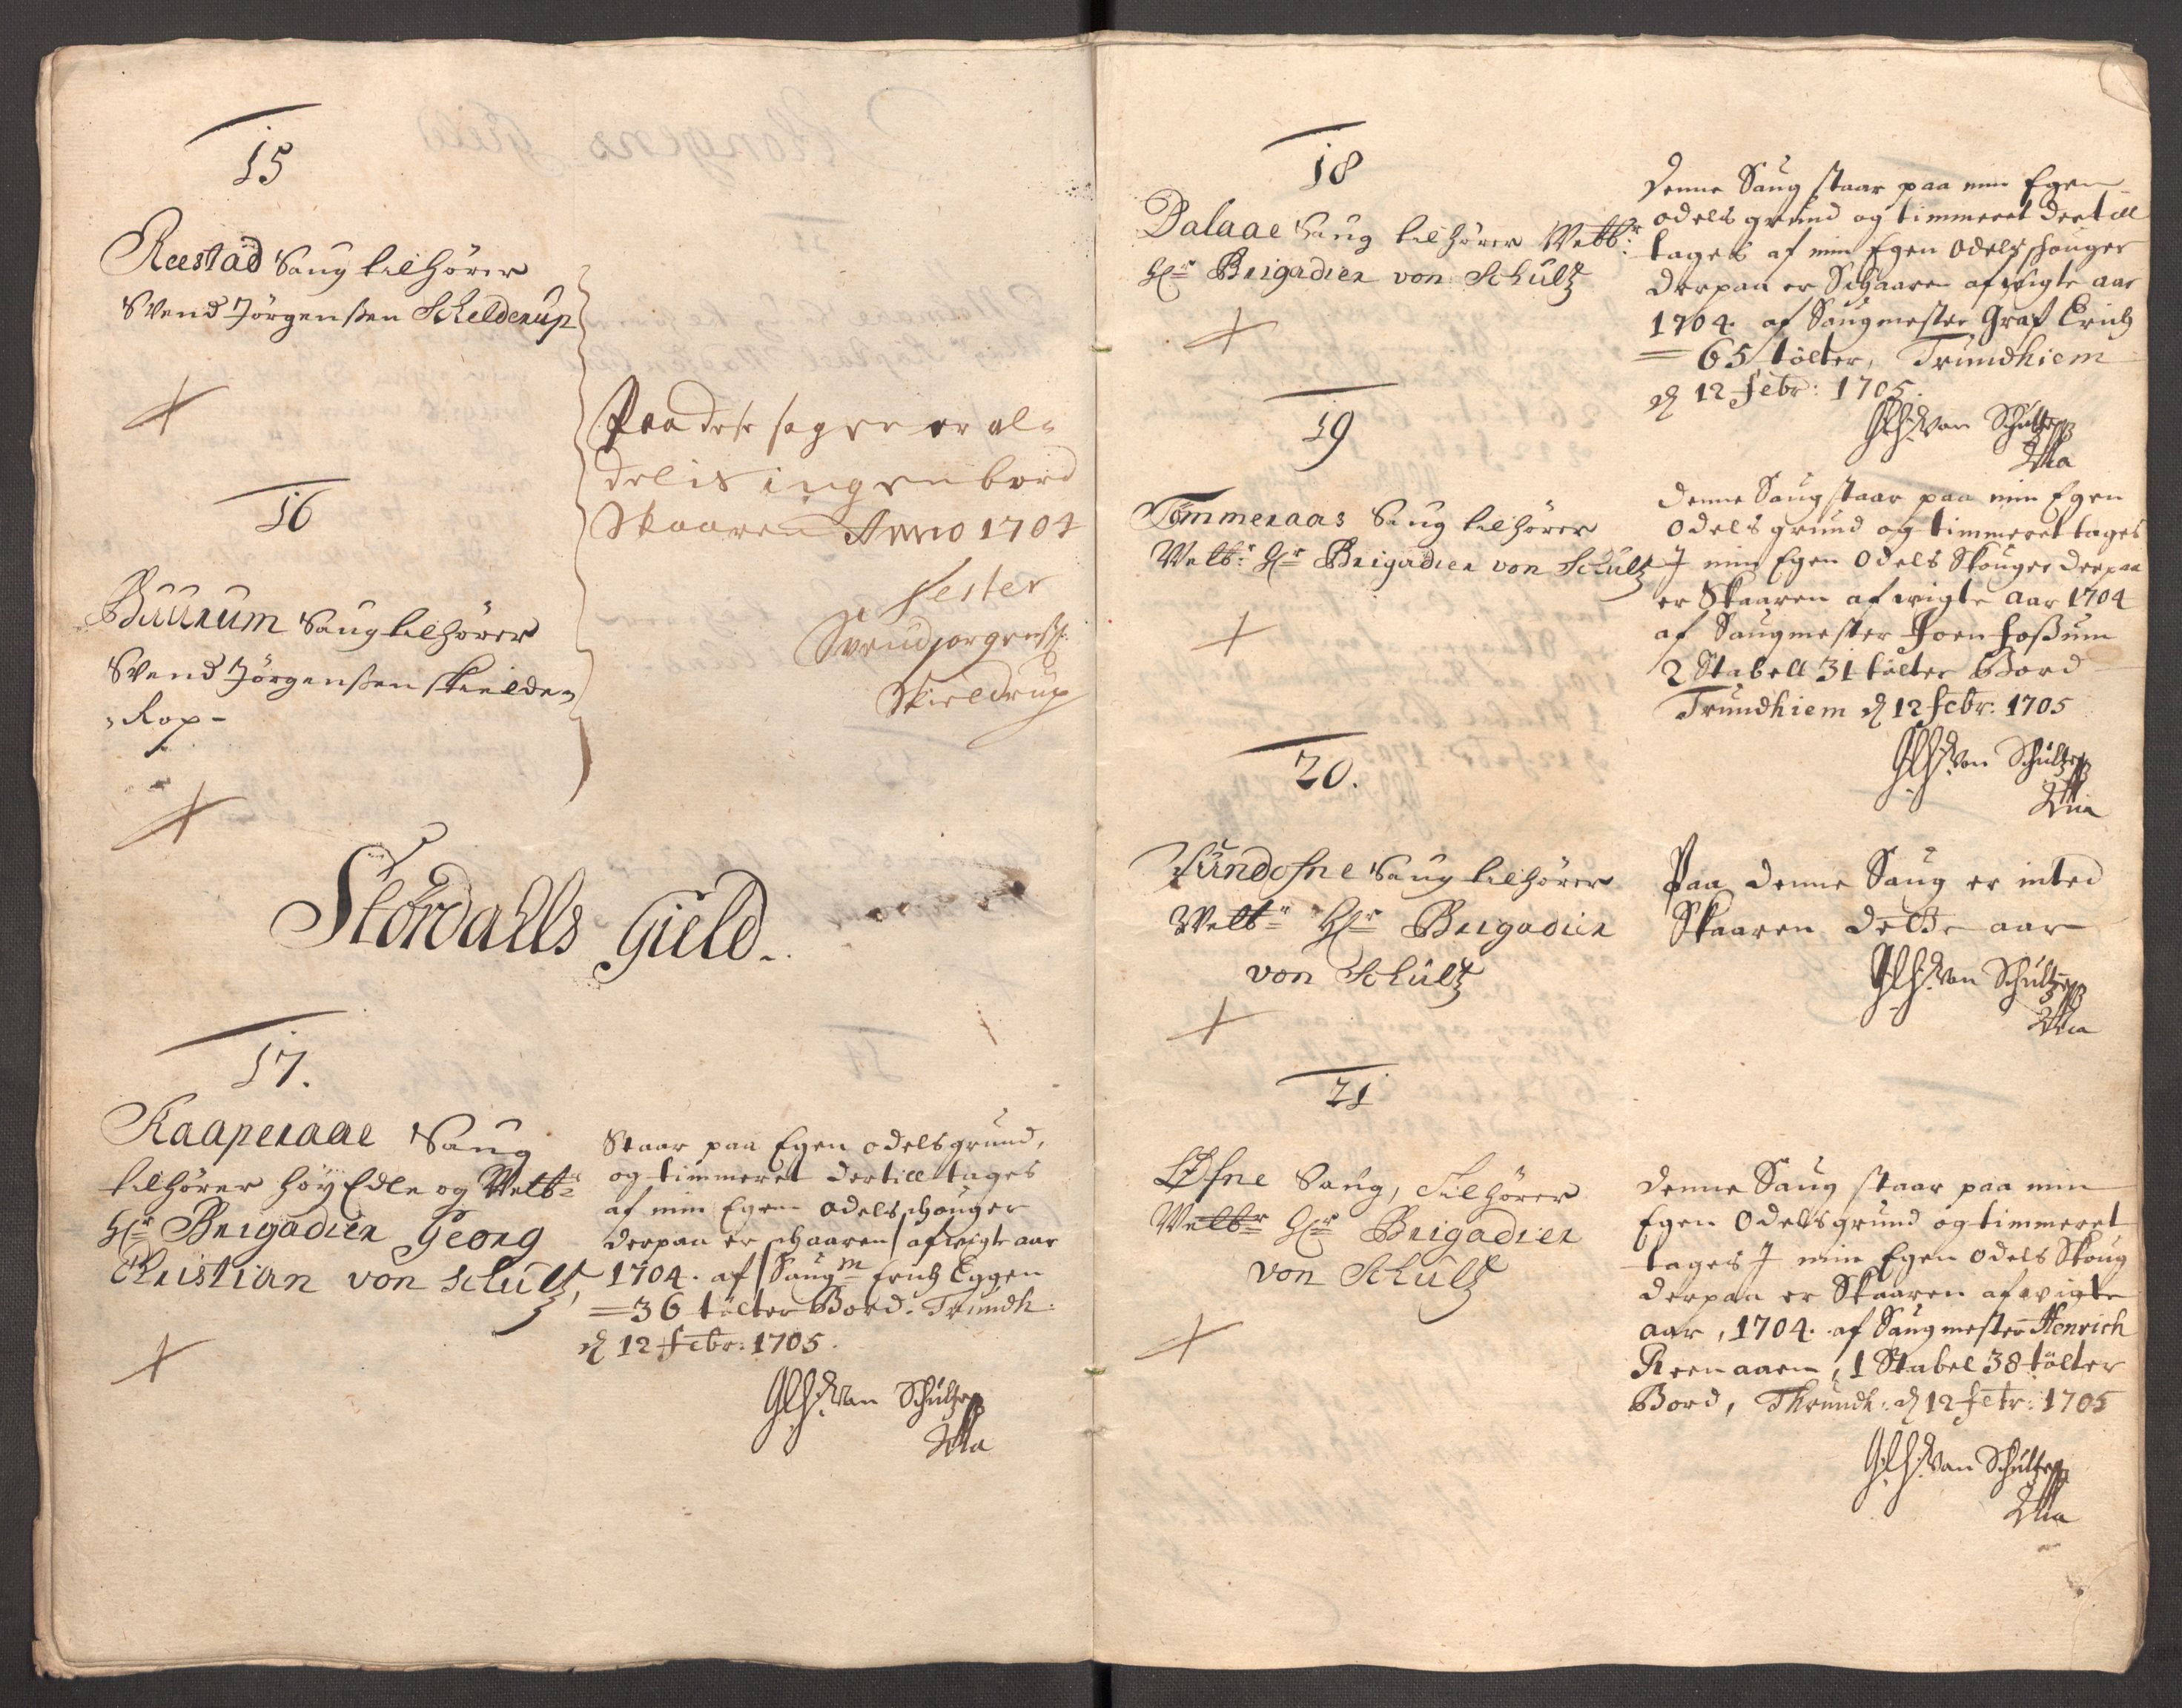 15
Reestad Saug tilhører
Svend Jörgensßen Schelderup
16
Buurum Saug tilhører
Svend Jörgenßen Skielde,,
,,Rop -
Paa dese sager er al-
delis ingen bord
Skaaren Anno 1704
Tester
Svend Jorgenss:
Skieldrup
Størdalls Gield.
17.
Kaaperaae Saug
tilhører høy Edle og Velb:r
Hr Brigadier Georg
Christian von Schultz,
Staar paa Egen odelsgrund,
og timmeret dertill tages
af min Egen odelsschouger
derpaa er schaaren afvigte aar
1704. af Saugm Erich Eggen
= 36 tölter Bord. Trundh:
d 12 Febr: 1705.
GCh: Von Schultz
Mia
18
Dalaae Saug tilhører Welb:r
Hr Brigadier von Schultz
Denne Saug staar paa min Egen
odels grund og timmeret dertill
tages af min Egen odelsschouger
derpaa er Schaaren afvigte aar
1704. af Saugmester Graf Erich
= 65 tölter, Trundhiem
d 12 Febr: 1705.
GCh: Von Schultz
Mia
19
Tømmeraas Saug tilhører
Welb:r Hr Brigadier von Schultz
Denne Saug staar paa min Egen
Odels grund og timmeret tages
J min Egen Odels Skouger derpaa
er Skaaren afvigte Aar 1704
af Saugmester Joen Foßum
2 Stabell 31 tölter Bord
Trundhiem d 12 Febr: 1705
GCh: Von Schultz
Mia
20.
Fundosne Saug tilhører
Welbr Hr Brigadier
von Schultz
Paa denne Saug er inted
Skaaren dette aar
GCh: Von Schultz
Mia
21
Øfne Saug, Tilhører
Welbr Hr Brigadier
von Schultz
Denne Saug staar paa min
Egen Odelsgrund og timmeret
tages J min Egen Odels Skoug
derpaa er Skaaren afvigte
aar, 1704. af Saugmester Henrich
Reenaaen, 1 Stabel 38 tölter
Bord, Thrundh: d 12 Febr: 1705
GCh: Von Schultz
Mia